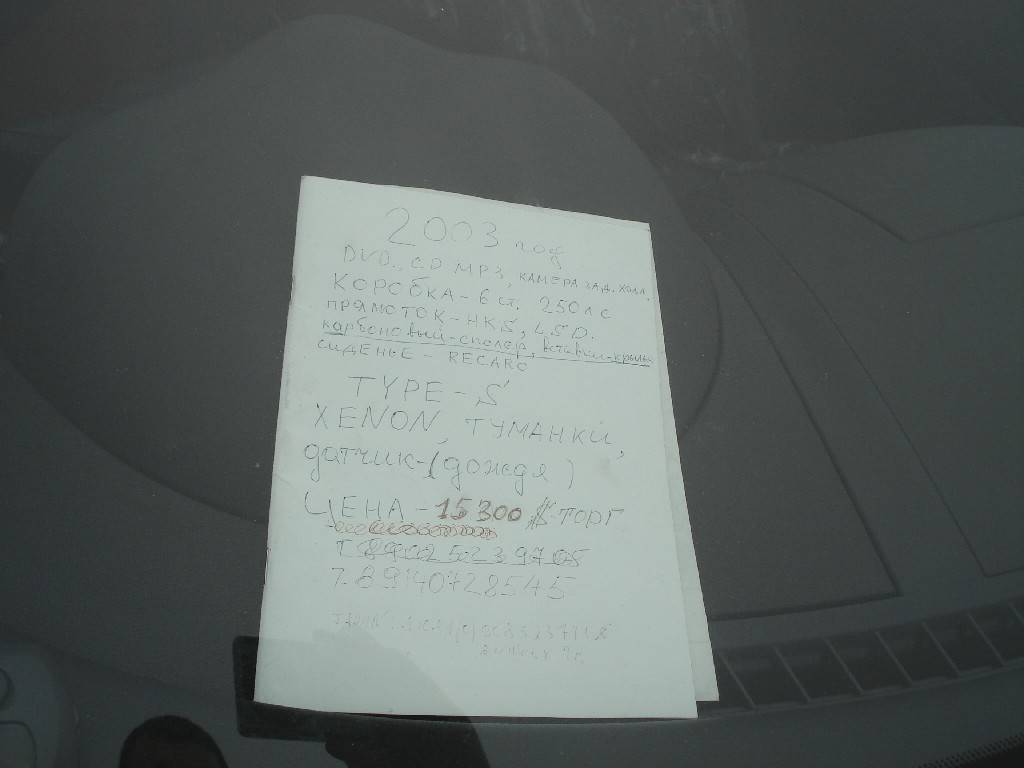 2003 год
DVD, CD MP3, КАМЕРА ЗАД. ХОДА.
КОРОБКА - 6 ст. 250 л с
ПРЯМОТОК - HKS, 4,5D.
карбоновый - сполер,
СИДЕНЬЕ - RECARO
TYPE - S
XENON, ТУМАНКИ,
датчик - (дождя)
ЦЕНА - 15300 $ ТОРГ
Т. 89025239705
Т. 89140728545